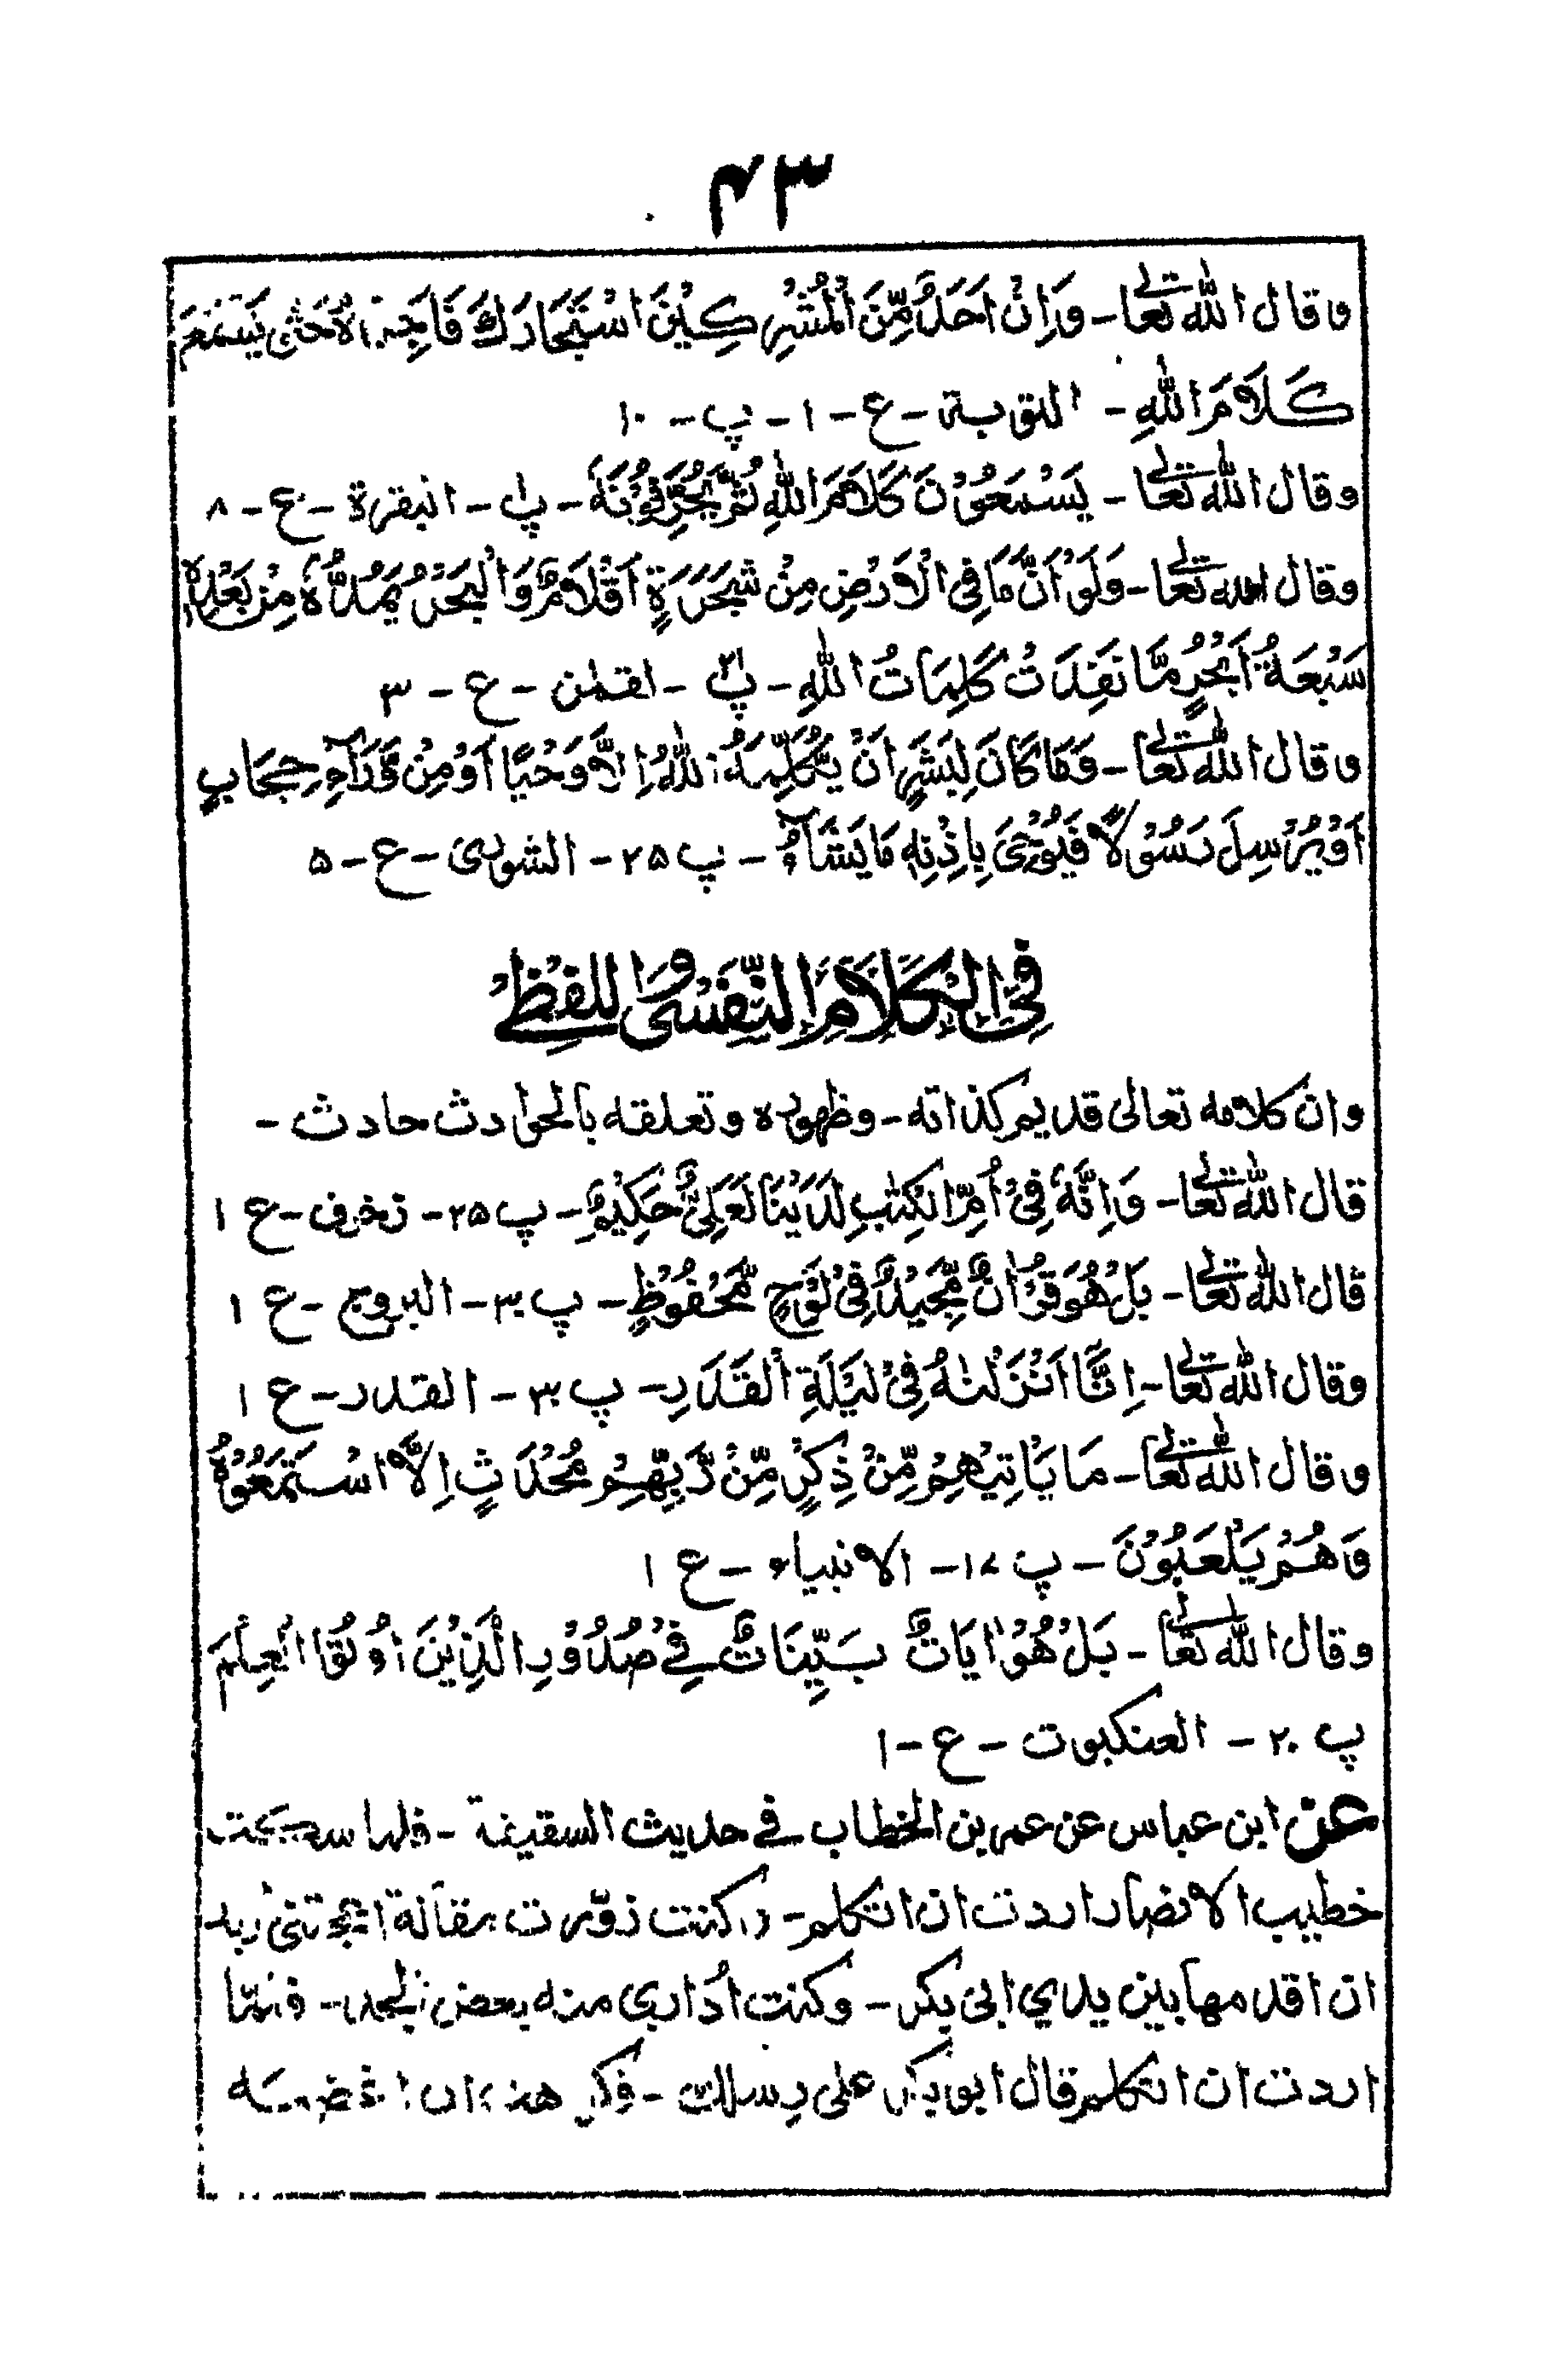 ۴۳
وقال الله تعالى - وَاِنْ اَحَدٌ مِّنَ الْمُشْرِكِيْنَ اسْتَجَارَكَ فَاَجِرْهُ حَتّٰى يَسْمَعَ
كَلَامَ اللهِ - التوبة - ع - ۱ - پ - ۱۰
وقال الله تعالى - يَسْمَعُوْنَ كَلَامَ اللهِ ثُمَّ يُحَرِّفُوْنَهٗ - پ ۱ - البقرة - ع - ۸
وقال الله تعالى - وَلَوْ اَنَّ مَا فِي الْاَرْضِ مِنْ شَجَرَةٍ اَقْلَامٌ وَالْبَحْرُ يَمُدُّهٗ مِنْ بَعْدِهٖ
سَبْعَةُ اَبْحُرٍ مَّا نَفِدَتْ كَلِمَاتُ اللهِ - پ ۲۱ - لقمٰن - ع - ۳
وقال الله تعالى - وَمَا كَانَ لِبَشَرٍ اَنْ يُّكَلِّمَهُ اللهُ اِلَّا وَحْيًا اَوْ مِنْ وَّرَآءِ حِجَابٍ
اَوْ يُرْسِلَ رَسُوْلًا فَيُوْحِيَ بِاِذْنِهٖ مَا يَشَآءُ - پ ۲۵ - الشورى - ع - ۵
فِي الْكَلَامِ النَّفْسِيِّ وَاللَّفْظِيْ
وان كلامه تعالى قديم كذاته - وظهوره وتعلقه بالحوادث حادث -
قال الله تعالى - وَاِنَّهٗ فِيْ اُمِّ الْكِتٰبِ لَدَيْنَا لَعَلِيٌّ حَكِيْمٌ - پ ۲۵ - زخرف - ع ۱
قال الله تعالى - بَلْ هُوَ قُرْاٰنٌ مَّجِيْدٌ فِيْ لَوْحٍ مَّحْفُوْظٍ - پ ۳۰ - البروج - ع ۱
وقال الله تعالى - اِنَّا اَنْزَلْنٰهُ فِيْ لَيْلَةِ الْقَدْرِ - پ ۳۰ - القدر - ع ۱
وقال الله تعالى - مَا يَأْتِيْهِمْ مِّنْ ذِكْرٍ مِّنْ رَّبِّهِمْ مُحْدَثٍ اِلَّا اسْتَمَعُوْهُ
وَهُمْ يَلْعَبُوْنَ - پ ۱۷ - الانبياء - ع ۱
وقال الله تعالى - بَلْ هُوَ اٰيَاتٌ بَيِّنَاتٌ فِيْ صُدُوْرِ الَّذِيْنَ اُوْتُوا الْعِلْمَ
پ ۲۰ - العنكبوت - ع - ۱
عن ابن عباس عن عمر بن الخطاب في حديث السقيفة - فلما سكت
خطيب الانصار اردت ان اتكلم - وكنت زوّرت مقالة اعجبتني اريد
ان اقدمها بين يدي ابى بكر - وكنت اُدارى منه بعض الحد - فلمّا
اردت ان اتكلم قال ابو بكر على رسلك - فكرهت ان اغضبه